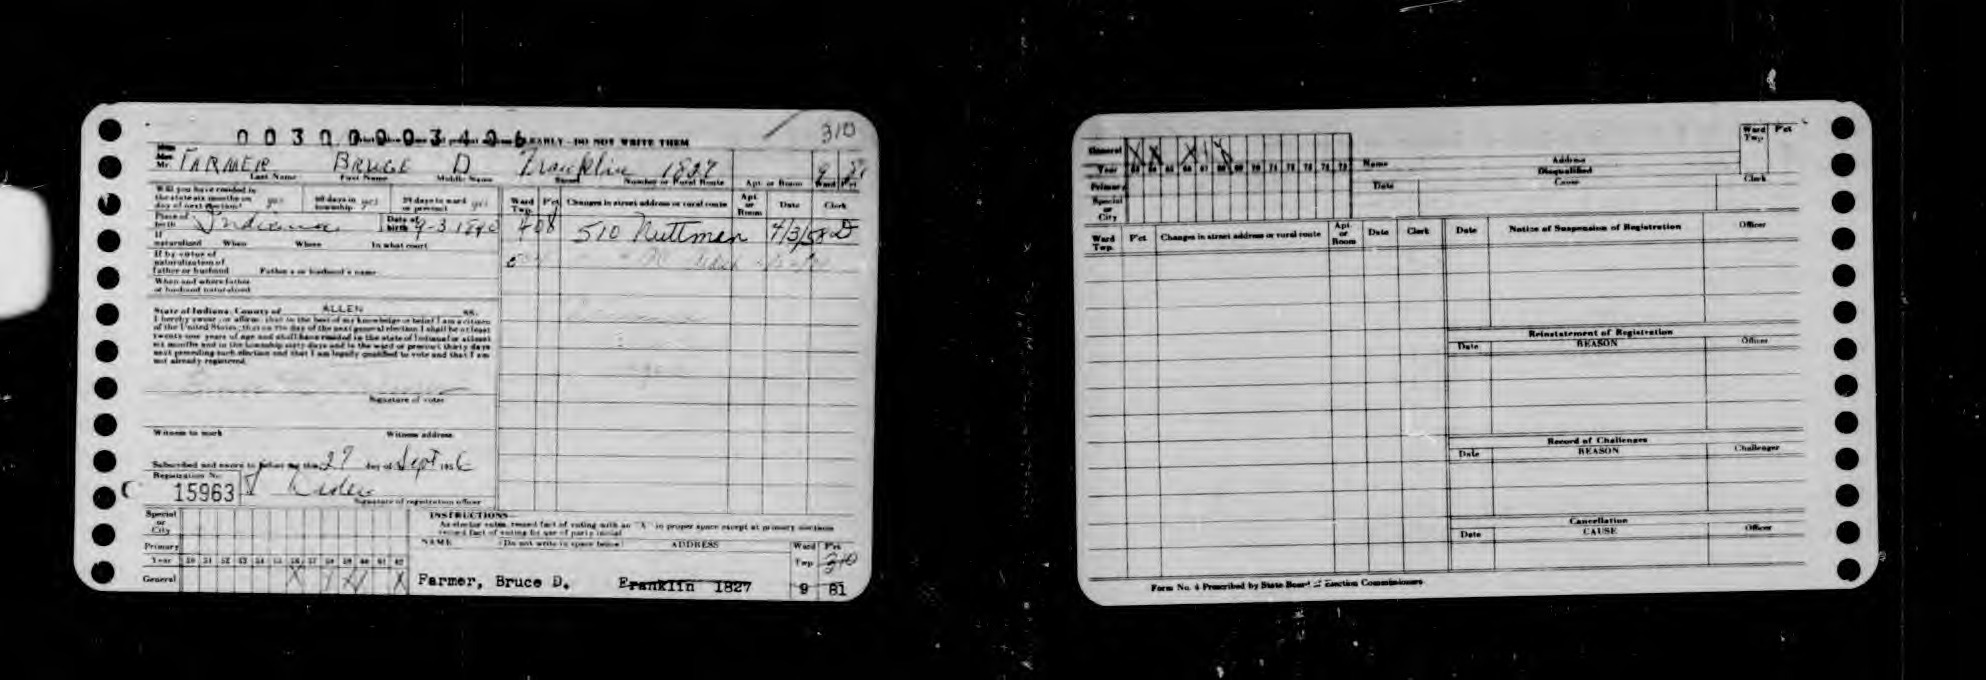 310
EARLY - DO NOT WRITE THEM
Mr. FARMER BRUCE D. Franklin 1827 9 81
Last Name First Name Middle Name Street Number or Rural Route Apt. or Room Ward Pct
Will you have resided in the state six months on day of next election? yes 60 days in township yes 30 days in ward or precinct yes
Ward Twp. P'ct Changes in street address or rural route Apt. or Room Date Clerk
Place of birth Indiana Date of birth 9-3-1890
408 510 Nuttman 4/3/58
If naturalized When Where In what court
If by virtue of naturalization of father or husband Father's or husband's name
When and where father or husband naturalized
State of Indiana, County of ALLEN SS.
I hereby swear or affirm that to the best of my knowledge or belief I am a citizen
of the United States; that on the day of the next general election I shall be at least
twenty-one years of age and shall have resided in the state of Indiana for at least
six months and in the township sixty days and in the ward or precinct thirty days
next preceding such election and that I am legally qualified to vote and that I am
not already registered.
Signature of voter
Witness to mark Witness address
Subscribed and sworn to before me this 27 day of Sept 1956
Registration No.
15963
Signature of registration officer
Special or City
INSTRUCTIONS
As elector votes, record fact of voting with an "X" in proper space except at primary elections
record fact of voting by use of party initial
Primary
NAME (Do not write in space below) ADDRESS Ward Twp P'ct
Year 50 51 52 53 54 55 56 57 58 59 60 61 62
310
General X X X X
Farmer, Bruce D. Franklin 1827 9 81
General
Year 63 64 65 66 67 68 69 70 71 72 73 74 75
Primary
Special or City
Name Address Ward Twp. P'ct
Disqualified
Date Cause Clerk
Ward Twp. P'ct Changes in street address or rural route Apt. or Room Date Clerk Date Notice of Suspension of Registration Officer
Reinstatement of Registration
Date REASON Officer
Record of Challenges
Date REASON Challenger
Cancellation
Date CAUSE Officer
Form No. 4 Prescribed by State Board of Election Commissioners